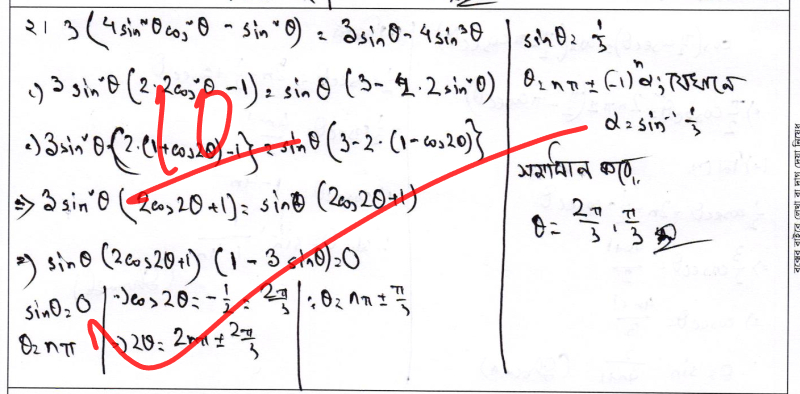 ২। 3 (4 sin²θ cos²θ - sin²θ) = 3 sinθ - 4 sin³θ
∴) 3 sin²θ (2·2cos²θ - 1) = sinθ (3 - 2·2 sin²θ)
∴) 3 sin²θ {2·(1+cos2θ) - 1} = sinθ {3 - 2·(1 - cos2θ)}
⇒) 3 sin²θ (2cos2θ + 1) = sinθ (2cos2θ + 1)
⇒) sinθ (2cos2θ+1) (1 - 3 sinθ) = 0
sinθ = 0
θ = nπ
∴) cos2θ = - 1/2 = 2π/3
⇒) 2θ = 2nπ ± 2π/3
∴ θ = nπ ± π/3
sinθ = 1/3
θ = nπ ± (-1)ⁿ α; যেখানে
α = sin⁻¹ 1/3
সমাধান করে,
θ = 2π/3, π/3
10
বক্সের বাইরে লেখা বা দাগ দেয়া নিষেধ